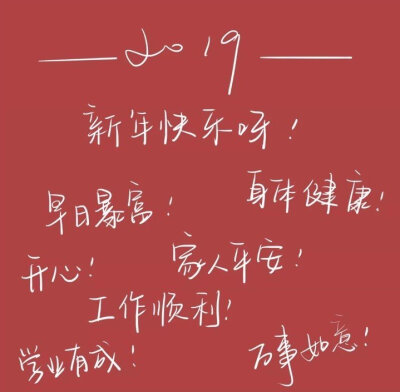 ——2019——
新年快乐呀!
早日暴富!
身体健康!
开心!
家人平安!
工作顺利!
学业有成!
万事如意!